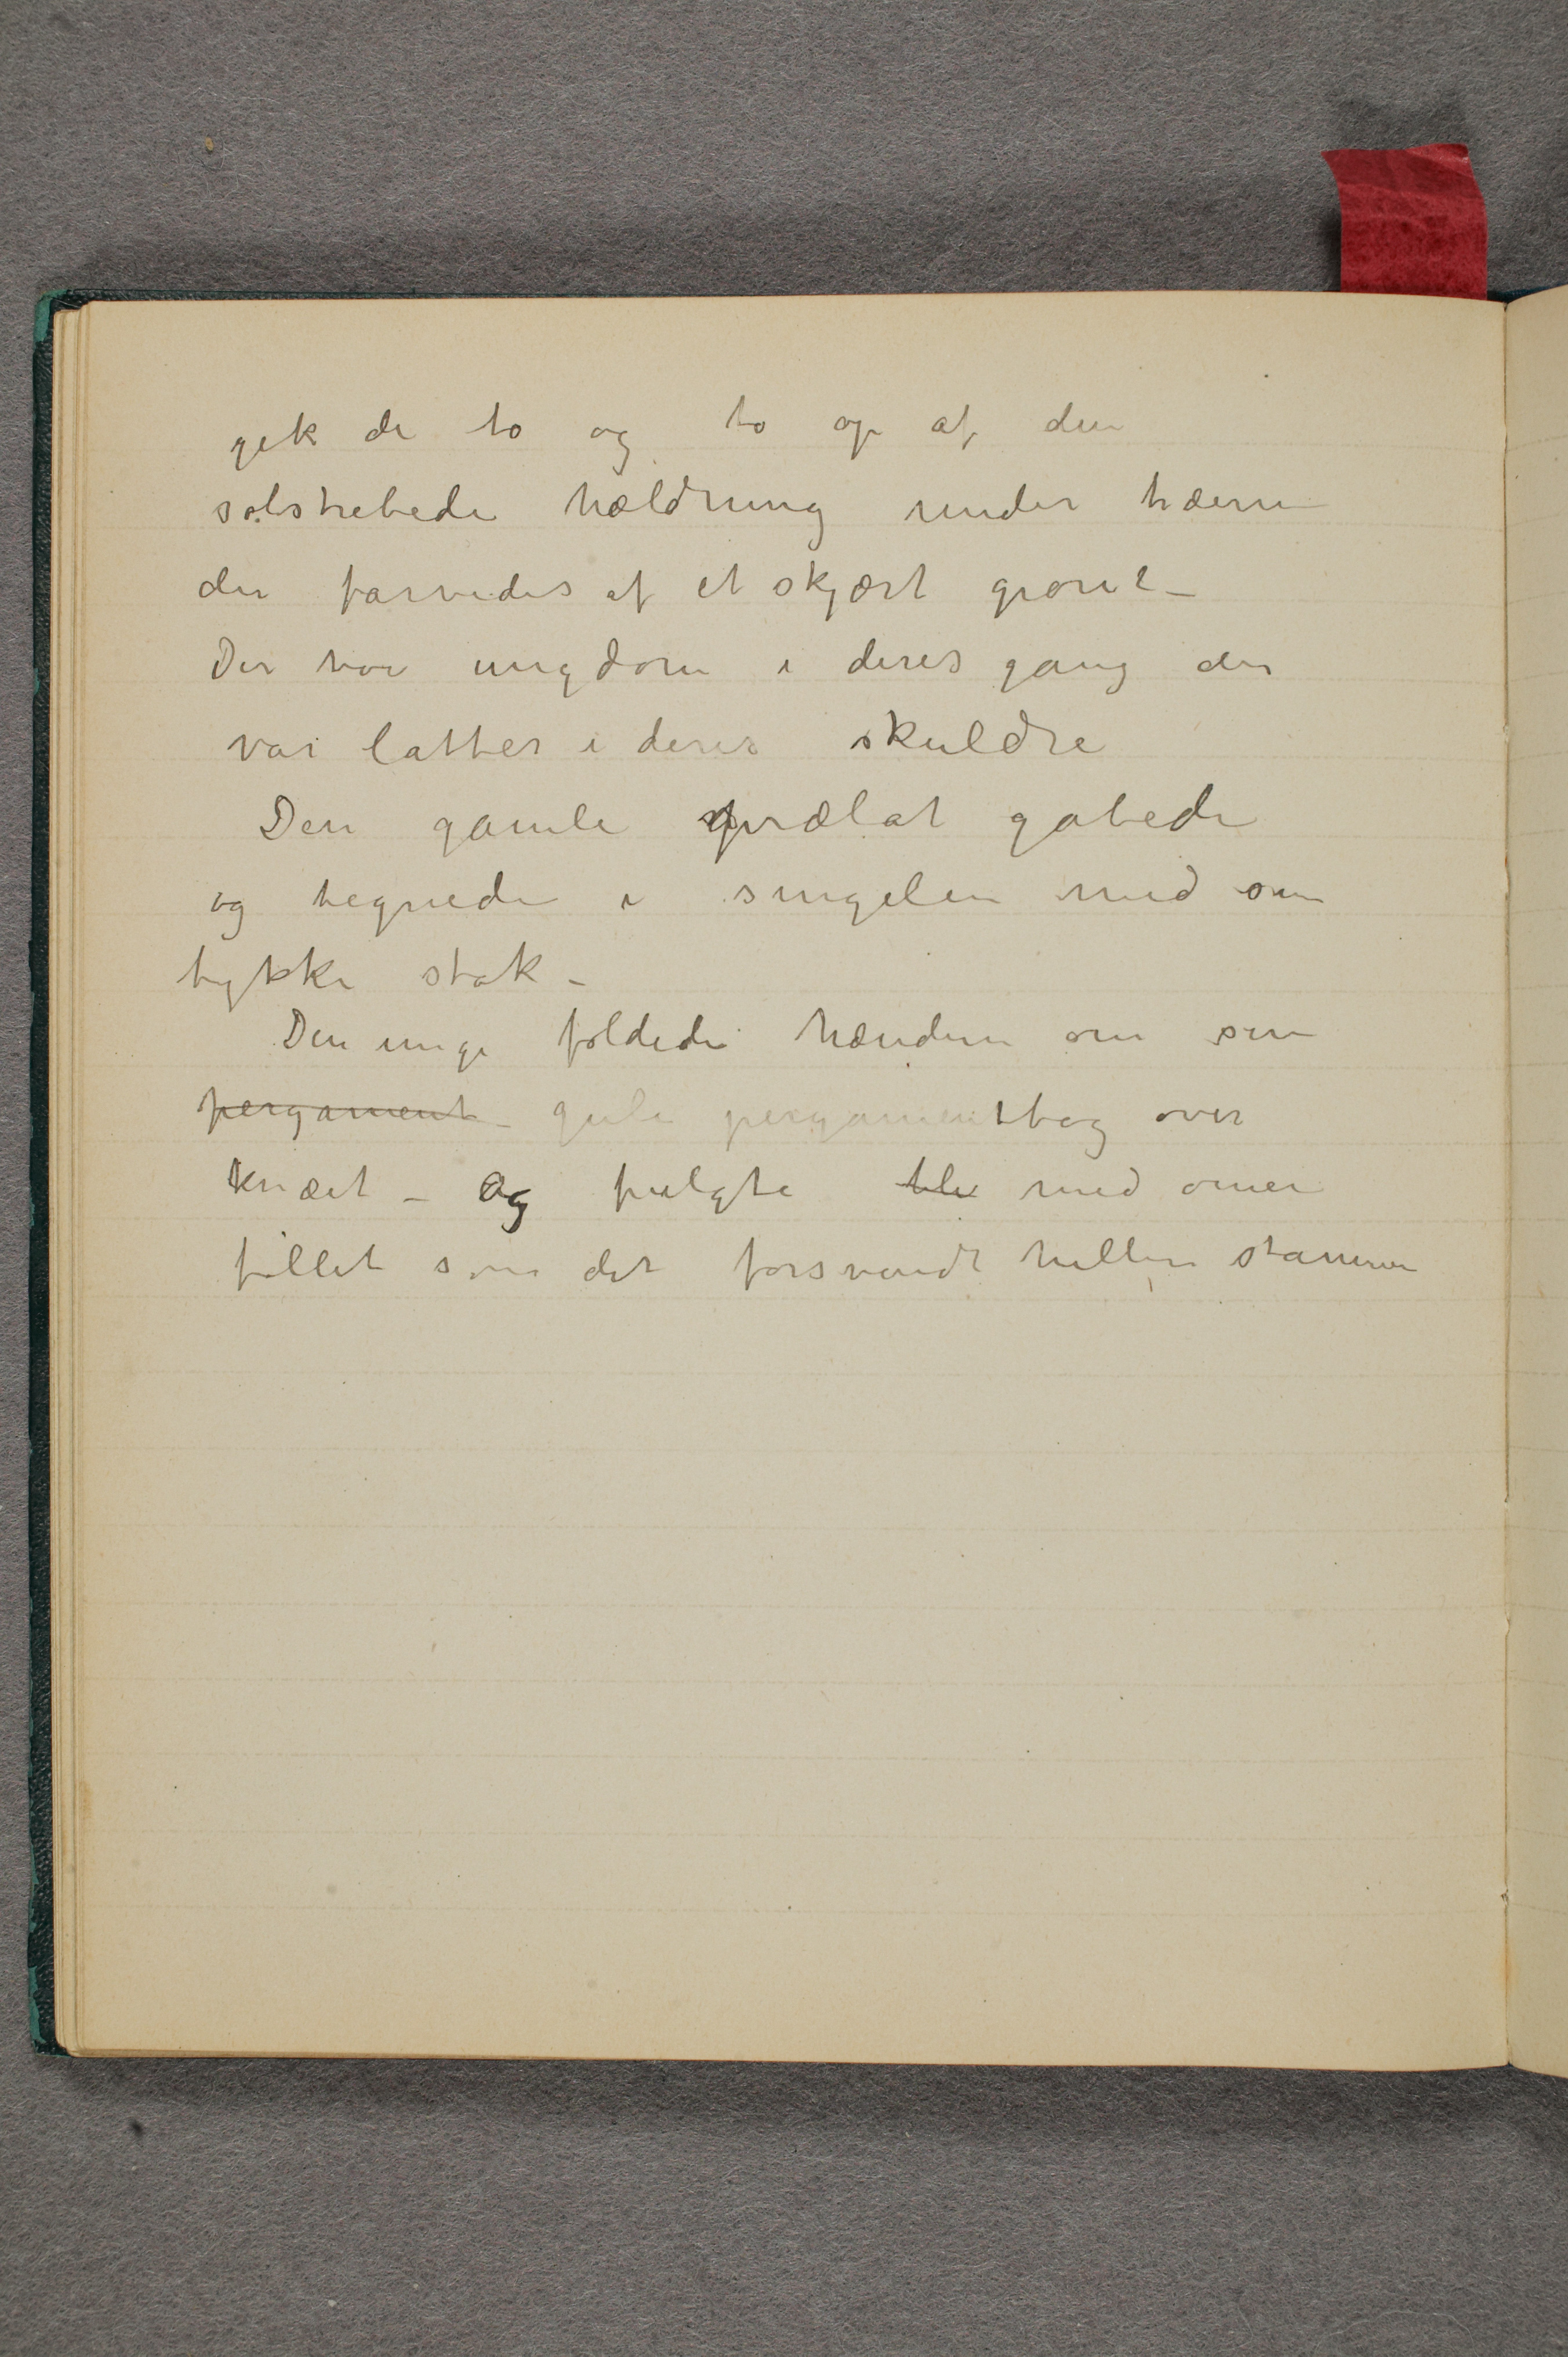 gik de to og to op af den
solstrebede hældning under træerne
der farvedes af et skjært grønt –
Der var ungdom i deres gang der
var latter i deres skuldre
Den gamle prælat gabede
og tegnede i singelen med sin
tykke stok –
Den unge foldede hænderne om sin
pergament gule pergamentbog over
knæet – og fulgte med øinene
føllet som det forsvandt mellem stammerne